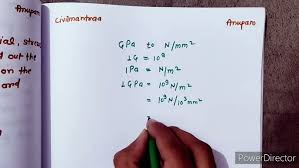 Anuparo
Civilmantraa
Anuparo
ial, stress
d out the
on the
and
GPa to N/mm²
1G = 10⁹
1Pa = N/m²
1GPa = 10⁹ N/m²
= 10⁹ N/10³mm²
PowerDirector